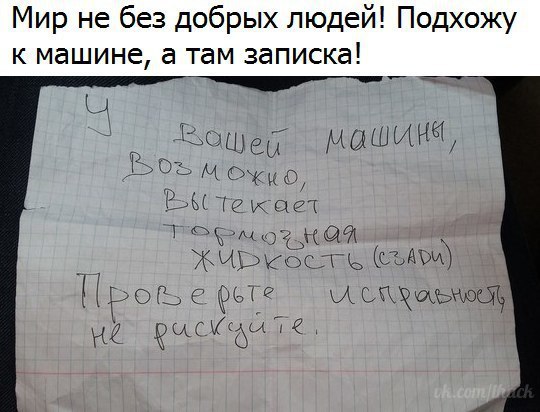 Мир не без добрых людей! Подхожу
к машине, а там записка!
У Вашей машины,
Возможно,
Вытекает
тормозная
жидкость (сзади)
Проверьте исправность,
не рискуйте.
vk.com/ihack